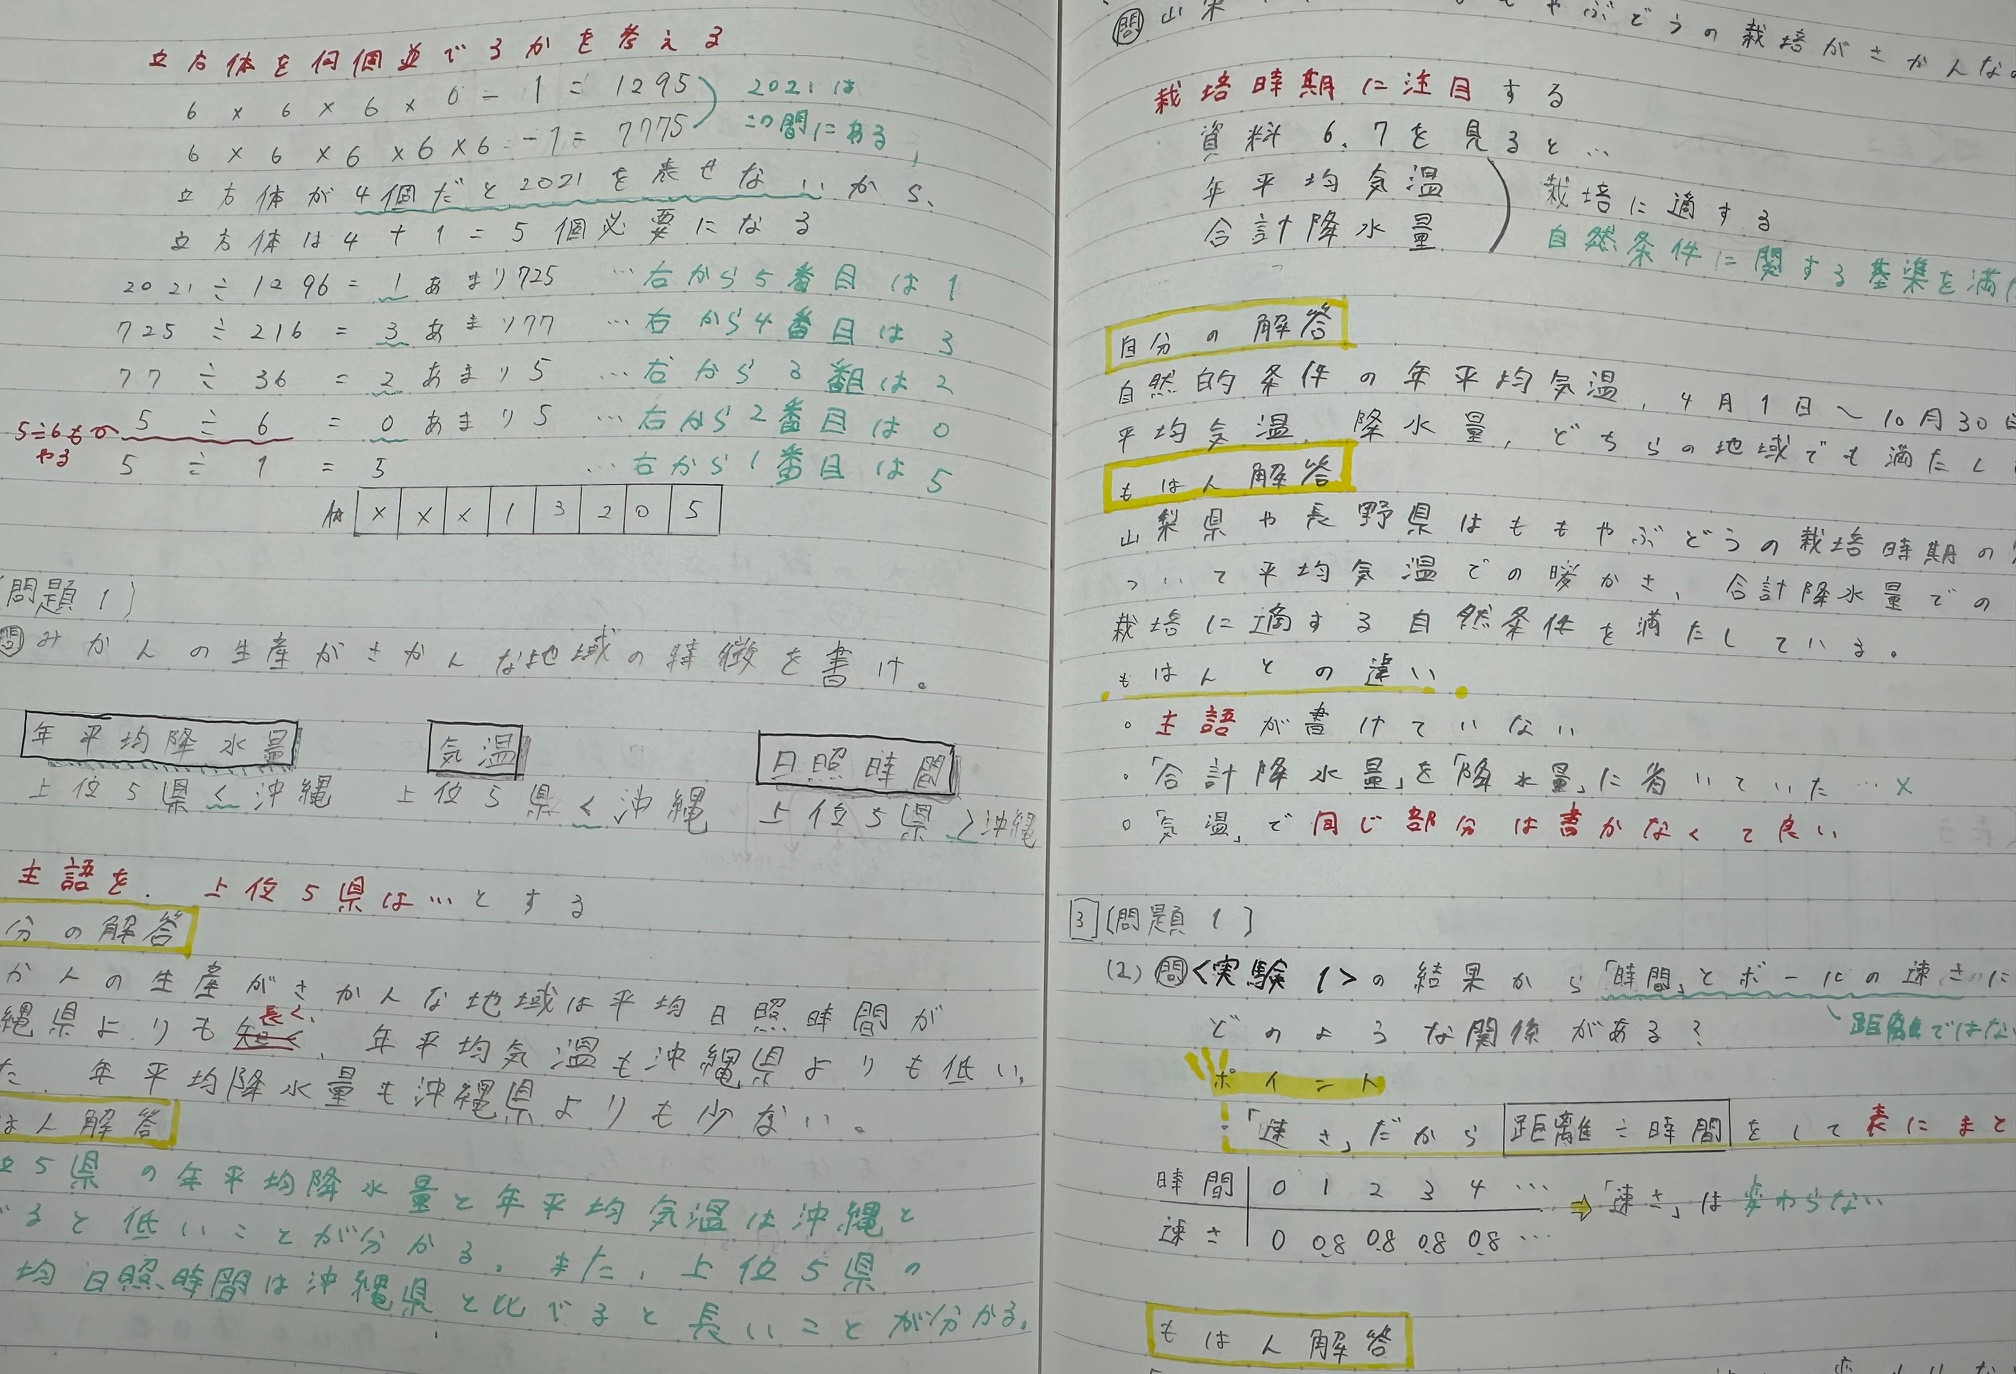 立方体を何個並べるかを考える
6 × 6 × 6 × 6 - 1 = 1295
2021は
6 × 6 × 6 × 6 × 6 - 1 = 7775
この間にある
立方体が4個だと2021を表せないから、
立方体は4+1=5個必要になる
2021 ÷ 1296 = 1あまり725 …右から5番目は1
725 ÷ 216 = 3あまり77 …右から4番目は3
77 ÷ 36 = 2あまり5 …右から3番目は2
5÷6もやる
5 ÷ 6 = 0あまり5 …右から2番目は0
5 ÷ 1 = 5 …右から1番目は5
× × × 1 3 2 0 5
[問題1]
問 みかんの生産がさかんな地域の特徴を書け。
年平均降水量 気温 日照時間
上位5県<沖縄 上位5県<沖縄 上位5県>沖縄
主語を、上位5県は…とする
分の解答
かんの生産がさかんな地域は平均日照時間が
長く、
縄県よりも短く、年平均気温も沖縄県よりも低い。
た、年平均降水量も沖縄県よりも少ない。
はん解答
位5県の年平均降水量と年平均気温は沖縄と
べると低いことが分かる。また、上位5県の
均日照時間は沖縄県と比べると長いことが分かる。
問 山梨 ももやぶどうの栽培がさかんな
栽培時期に注目する
資料6.7を見ると…
年平均気温
合計降水量
栽培に適する
自然条件に関する基準を満た
自分の解答
自然的条件の年平均気温、4月1日~10月30日
平均気温、降水量、どちらの地域でも満たし
もはん解答
山梨県や長野県はももやぶどうの栽培時期の
ついて平均気温での暖かさ、合計降水量での
栽培に適する自然条件を満たしている。
もはんとの違い
○主語が書けていない
○「合計降水量」を「降水量」に省いていた…×
○「気温」で同じ部分は書かなくて良い
3 [問題1]
(2) 問 <実験1>の結果から「時間」とボールの速さに
距離ではない
どのような関係がある?
ポイント
「速さ」だから 距離÷時間 をして表にまと
時間 0 1 2 3 4 …
⇒「速さ」は変わらない
速さ 0 0.8 0.8 0.8 0.8 …
もはん解答